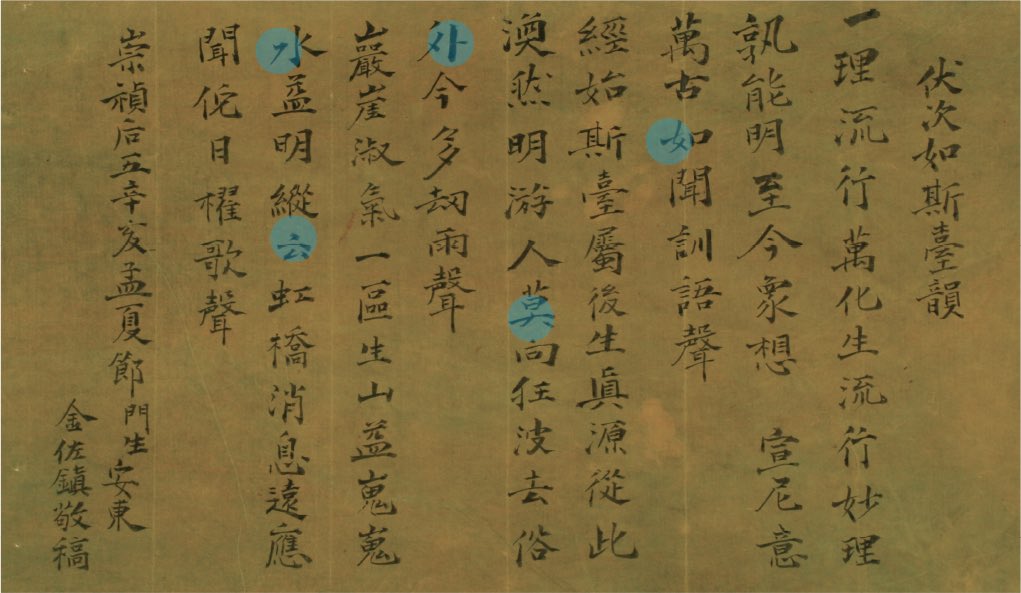 伏次如斯臺韻
一理流行萬化生流行妙理
孰能明至今象想 宣尼意
萬古如聞訓語聲
經始斯臺屬後生眞源從此
渙然明游人莫向狂波去俗
外今多刼雨聲
巖崖淑氣一區生山益嵬嵬
水益明縱云虹橋消息遠應
聞佗日櫂歌聲
崇禎后五辛亥孟夏節門生安東
金佐鎭敬稿